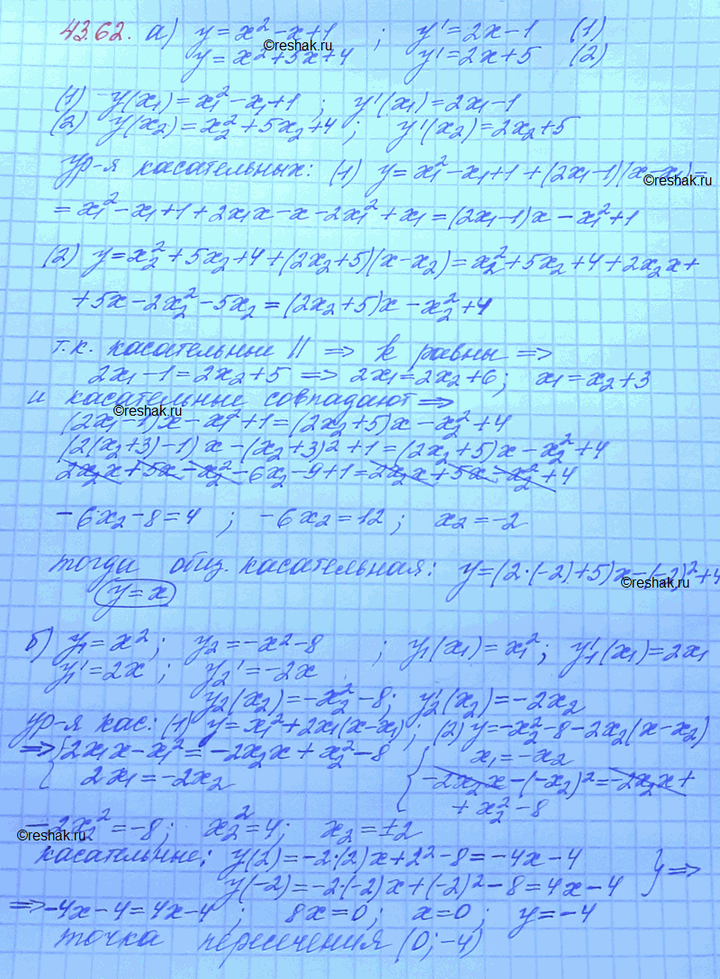 43.62. а) y = x² - x + 1 ; y' = 2x - 1 (1)
©reshak.ru
y = x² + 5x + 4 y' = 2x + 5 (2)
(1) y(x₁) = x₁² - x₁ + 1 ; y'(x₁) = 2x₁ - 1
(2) y(x₂) = x₂² + 5x₂ + 4 ; y'(x₂) = 2x₂ + 5
ур-я касательных: (1) y = x₁² - x₁ + 1 + (2x₁ - 1)(x - x₁) =
©reshak.ru
= x₁² - x₁ + 1 + 2x₁x - x - 2x₁² + x₁ = (2x₁ - 1)x - x₁² + 1
(2) y = x₂² + 5x₂ + 4 + (2x₂ + 5)(x - x₂) = x₂² + 5x₂ + 4 + 2x₂x +
+ 5x - 2x₂² - 5x₂ = (2x₂ + 5)x - x₂² + 4
т.к. касательные || ⇒ k равны ⇒
2x₁ - 1 = 2x₂ + 5 ⇒ 2x₁ = 2x₂ + 6 ; x₁ = x₂ + 3
и касательные совпадают ⇒
©reshak.ru
(2x₁ - 1)x - x₁² + 1 = (2x₂ + 5)x - x₂² + 4
(2(x₂ + 3) - 1)x - (x₂ + 3)² + 1 = (2x₂ + 5)x - x₂² + 4
2x₂x + 5x - x₂² - 6x₂ - 9 + 1 = 2x₂x + 5x - x₂² + 4
-6x₂ - 8 = 4 ; -6x₂ = 12 ; x₂ = -2
тогда общ. касательная: y = (2·(-2) + 5)x - (-2)² + 4
©reshak.ru
y = x
б) y₁ = x² ; y₂ = -x² - 8 ; y₁(x₁) = x₁² ; y₁'(x₁) = 2x₁
y₁' = 2x ; y₂' = -2x
y₂(x₂) = -x₂² - 8 ; y₂'(x₂) = -2x₂
ур-я кас: (1) y = x₁² + 2x₁(x - x₁) ; (2) y = -x₂² - 8 - 2x₂(x - x₂)
⇒ { 2x₁x - x₁² = -2x₂x + x₂² - 8 { x₁ = -x₂
2x₁ = -2x₂ -2x₂x - (-x₂)² = -2x₂x +
+ x₂² - 8
-2x₂² = -8 ; x₂² = 4 ; x₂ = ±2
©reshak.ru
касательные: y(2) = -2·(2)x + 2² - 8 = -4x - 4
y(-2) = -2·(-2)x + (-2)² - 8 = 4x - 4 } ⇒
⇒ -4x - 4 = 4x - 4 ; 8x = 0 ; x = 0 ; y = -4
точка пересечения (0; -4)